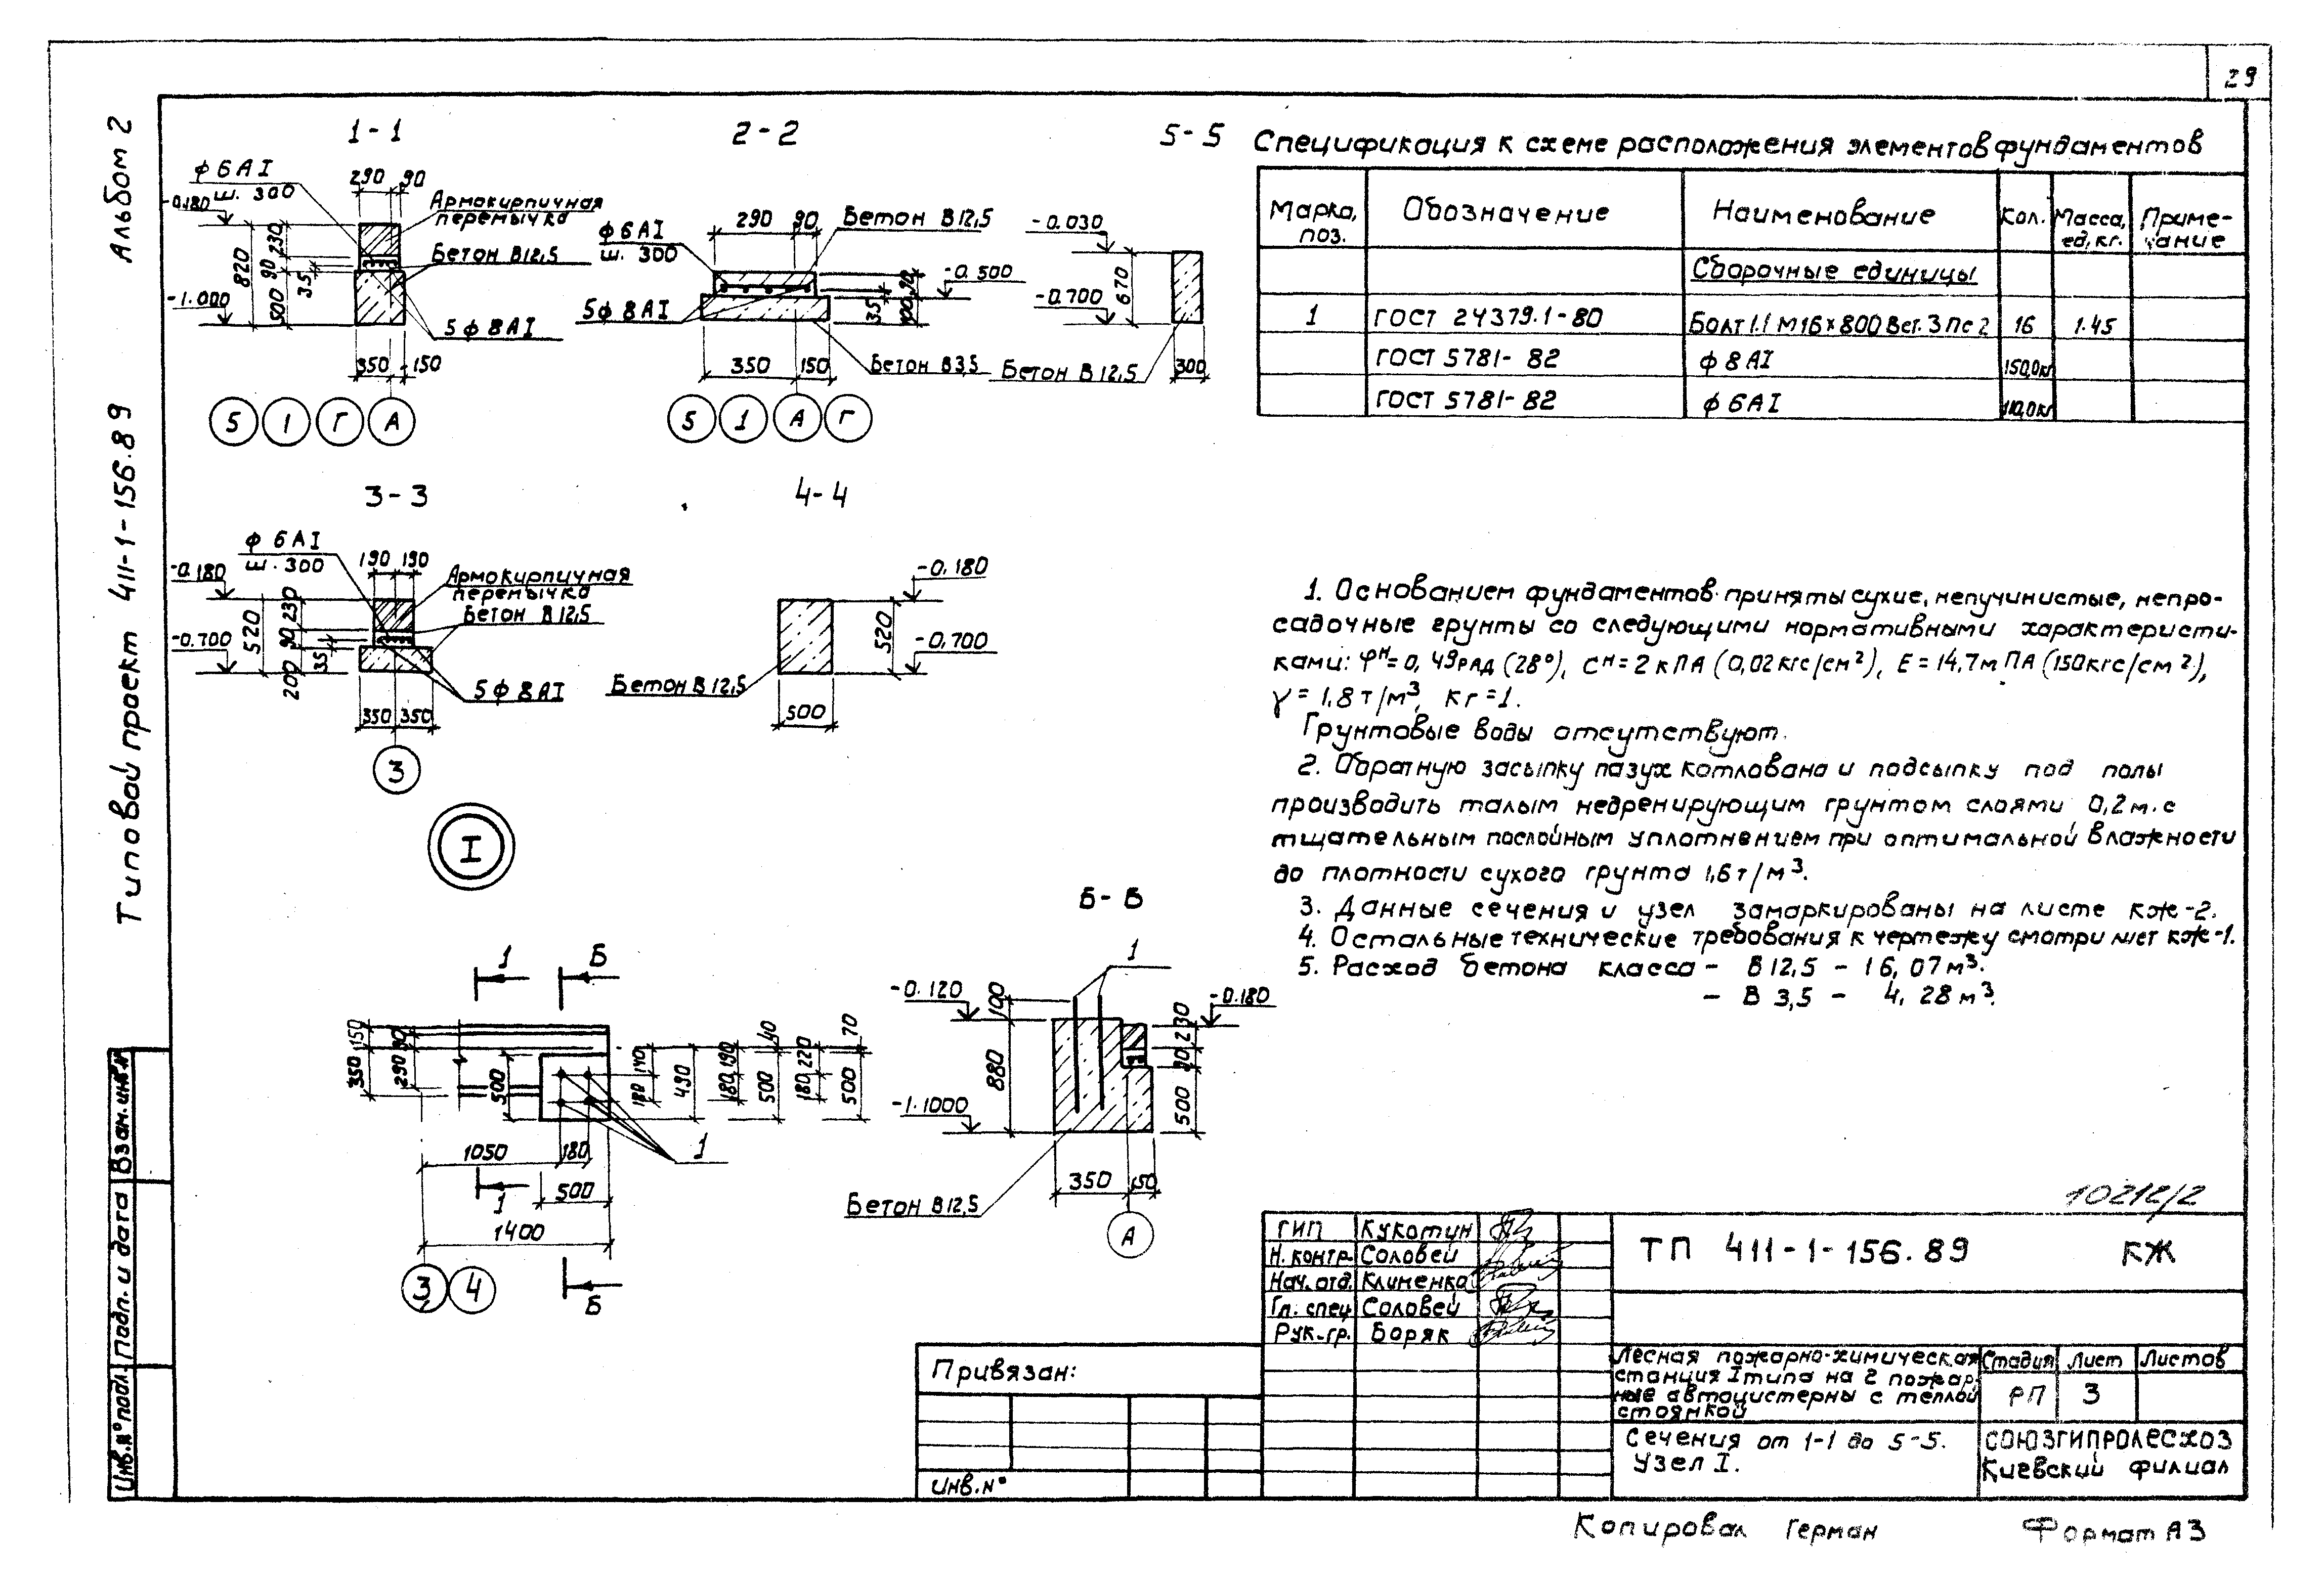 29
Альбом 2
Типовой проект 411-1-156.89
1-1
ф 6 АI
ш. 300
290 90
-0.180
Армокирпичная
перемычка
Бетон В12,5
820
230
90
35
500
-1.000
5 ф 8 АI
350 150
5 1 Г А
2-2
290 90
Бетон В12,5
ф 6 АI
ш. 300
-0.500
5 ф 8 АI
35
100
350 150
Бетон В3,5
5 1 А Г
5-5
-0.030
-0.700
670
Бетон В 12,5
300
3-3
ф 6 АI
ш. 300
190 190
-0.180
Армокирпичная
перемычка
Бетон В12,5
520
230
90
35
-0.700
200
5 ф 8 АI
350 350
3
4-4
-0.180
520
-0,700
Бетон В 12,5
500
I
1 Б
150
90
350
290
500
140
180
490
190
180
40
500
220
180
70
500
1050 180
1
1
500
1400
3 4
Б
Б-Б
1
-0.120
100
-0.180
230
90
880
500
-1.1000
350 150
Бетон В12,5
А
Спецификация к схеме расположения элементов фундаментов
Марка, поз. Обозначение Наименование Кол. Масса, ед, кг. Приме-чание
Сборочные единицы
1 ГОСТ 24379.1-80 Болт 1.1 М16×800 Вст.3 пс 2 16 1.45
ГОСТ 5781-82 ф 8 АI 150,0кг
ГОСТ 5781-82 ф 6 АI 110,0кг
1. Основанием фундаментов приняты сухие, непучинистые, непро-
садочные грунты со следующими нормативными характеристи-
ками: φн=0,49рад (28°), Сн=2 кПА (0,02кгс/см²), Е=14,7мПА (150кгс/см²),
γ=1,8т/м³, кг=1.
Грунтовые воды отсутствуют.
2. Обратную засыпку пазух котлована и подсыпку под полы
производить талым недренирующим грунтом слоями 0,2м. с
тщательным послойным уплотнением при оптимальной влажности
до плотности сухого грунта 1,6т/м³.
3. Данные сечения и узел замаркированы на листе кж-2.
4. Остальные технические требования к чертежу смотри лист кж-1.
5. Расход бетона класса - В12,5 - 16,07м³.
- В 3,5 - 4,28м³.
10212/2
ГИП Кукотин
Н. контр. Соловей
Нач. отд. Клименко
Гл. спец Соловей
Рук. гр. Боряк
ТП 411-1-156.89 КЖ
Лесная пожарно-химическая
станция I типа на 2 пожар-
ные автоцистерны с теплой
стоянкой
Стадия Лист Листов
РП 3
Сечения от 1-1 до 5-5.
Узел I.
СОЮЗГИПРОЛЕСХОЗ
Киевский филиал
Привязан:
Инв.N°
Инв.N°подл. Подп. и дата Взам.инв.N°
Копировал Герман Формат А3